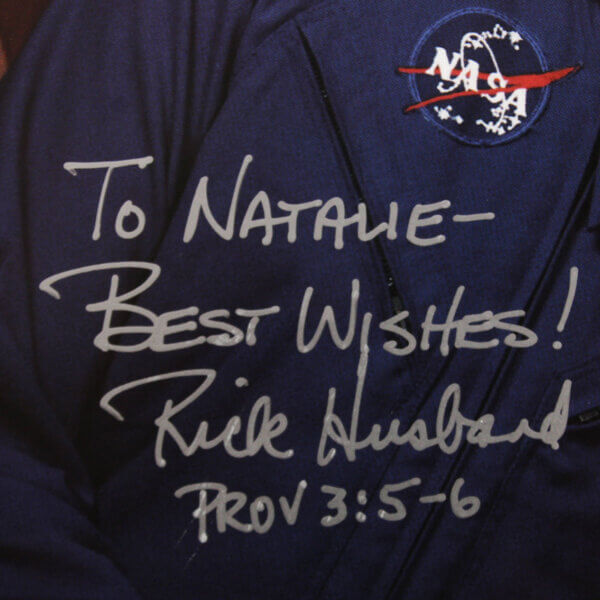 NASA
To NATALIE-
BEST WISHES!
Rick Husband
PROV 3:5-6